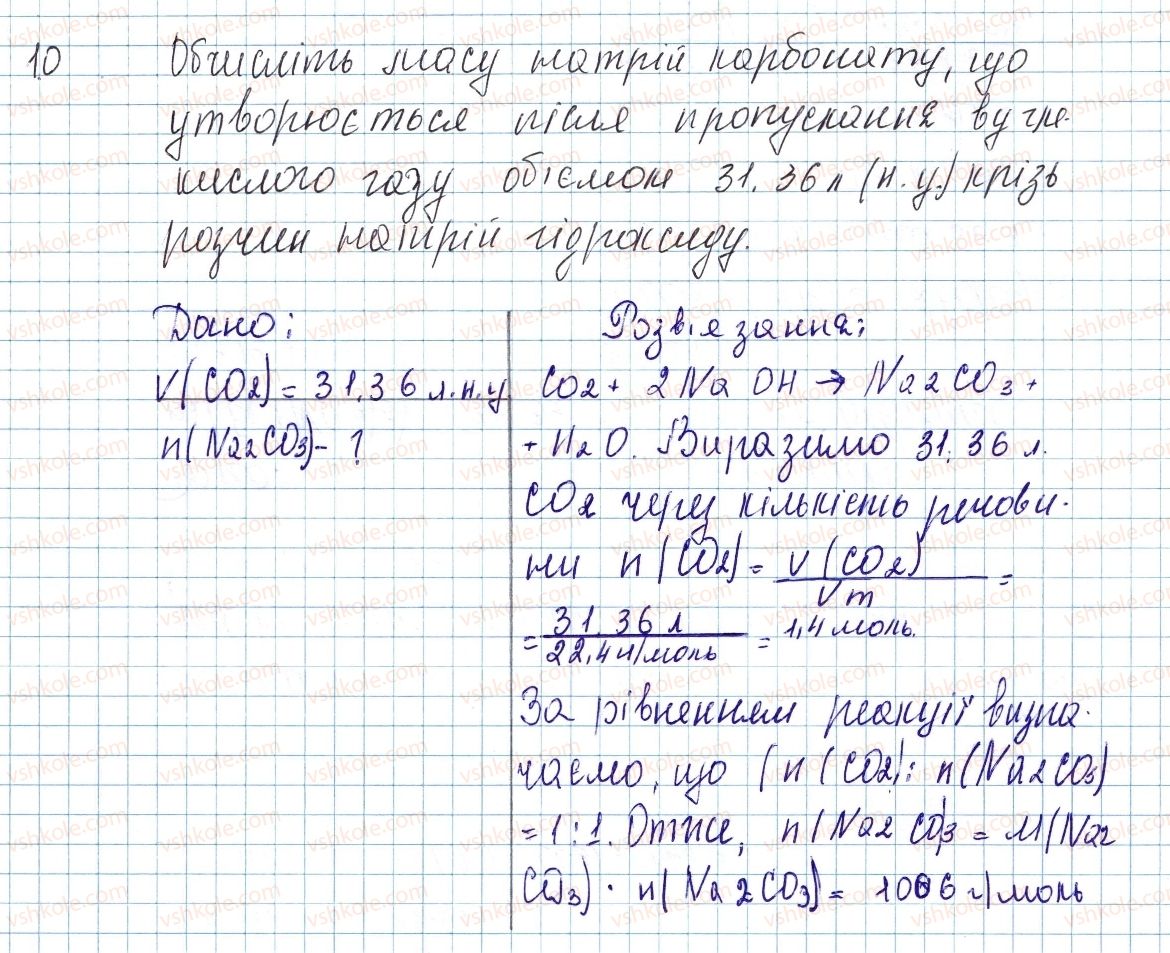 10 Обчисліть масу натрій карбонату, що
утворюється після пропускання вугле-
кислого газу об'ємом 31.36 л (н.у.) крізь
розчин натрій гідроксиду.
Дано:
V(CO2) = 31.36 л.н.у
n(Na2CO3) - ?
Розв'язання:
CO2 + 2NaOH → Na2CO3 +
+ H2O. Виразимо 31.36 л.
CO2 через кількість речови-
ни n(CO2) = V(CO2)/Vm =
= 31.36 л/22,4 л/моль = 1,4 моль.
За рівнянням реакції визна-
чаємо, що (n(CO2): n(Na2CO3)
= 1:1. Отже, n(Na2CO3 = M(Na2
CO3) · n(Na2CO3) = 1006 г/моль